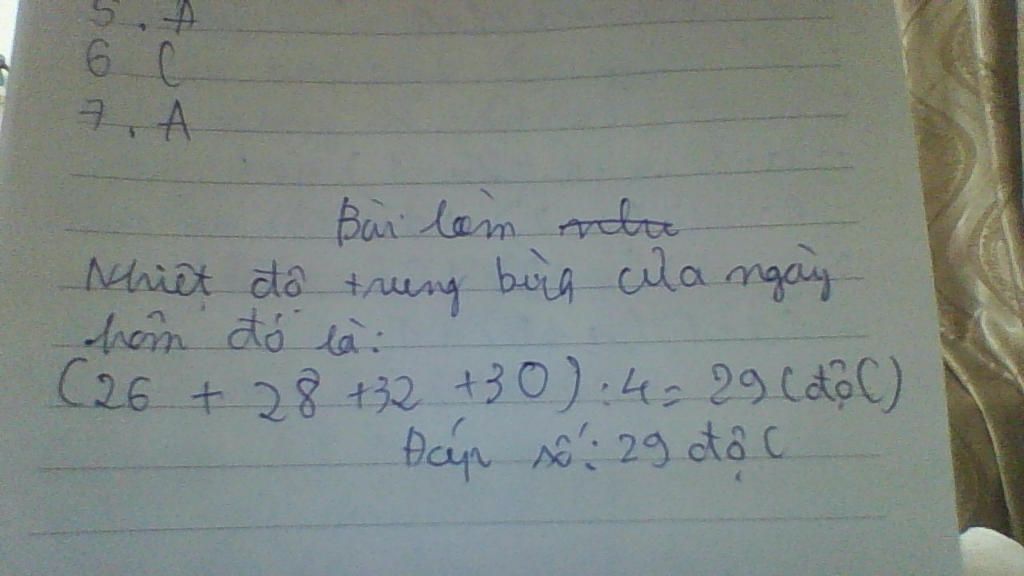 5. A
6 C
7. A
Bài làm
Nhiệt độ trung bình của ngày
hôm đó là:
(26 + 28 +32 +30) : 4 = 29 (độ C)
Đáp số: 29 độ C